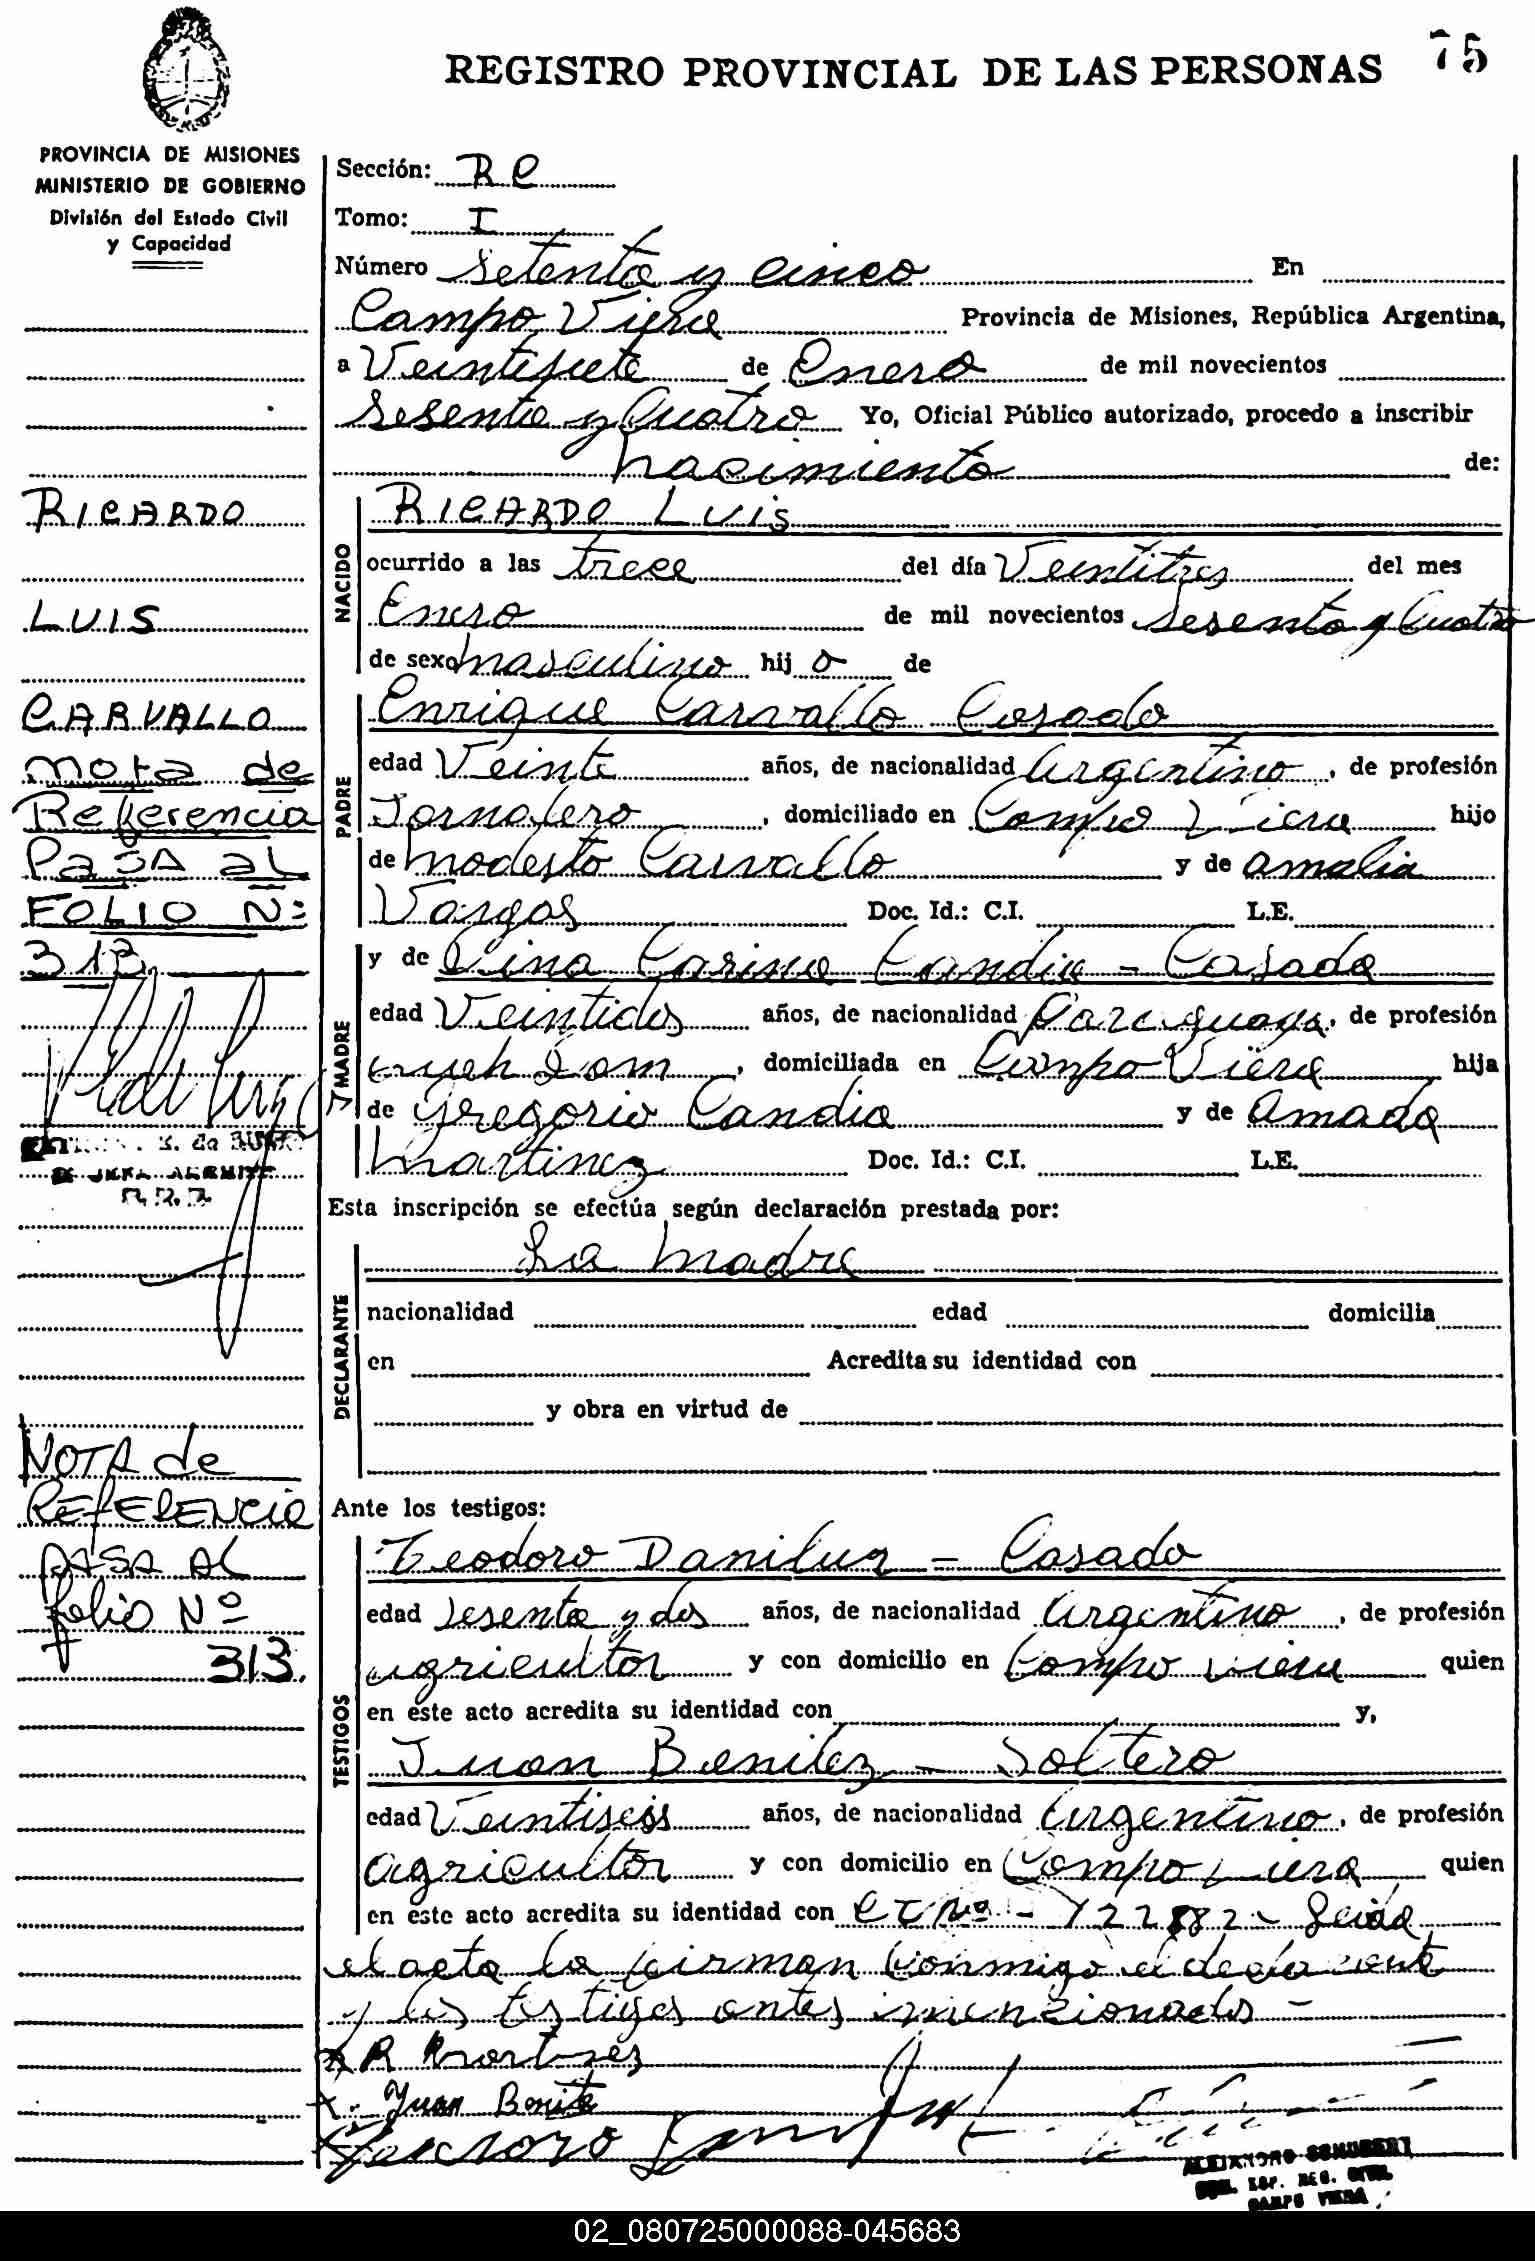 REGISTRO PROVINCIAL DE LAS PERSONAS 75
PROVINCIA DE MISIONES
MINISTERIO DE GOBIERNO
División del Estado Civil
y Capacidad
RICARDO
LUIS
CARVALLO
Nota de
Referencia
Pasa al
FOLIO Nº
313
NOTA de
REFERENCIA
PASA AL
folio Nº
313.
Sección: RC
Tomo: I
Número Setenta y cinco En
Campo Viera Provincia de Misiones, República Argentina,
a Veintisiete de Enero de mil novecientos
Sesenta y Cuatro Yo, Oficial Público autorizado, procedo a inscribir
nacimiento de:
NACIDO
RICARDO LUIS
ocurrido a las trece del día Veintitres del mes
Enero de mil novecientos Sesenta y Cuatro
de sexo masculino hijo de
PADRE
Enrique Carvallo Casado
edad Veinte años, de nacionalidad Argentino, de profesión
Jornalero, domiciliado en Campo Viera hijo
de Modesto Carvallo y de Amalia
Vargas Doc. Id.: C.I. L.E.
Y MADRE
y de Carina Candia - Casada
edad Veintidos años, de nacionalidad Paraguaya, de profesión
domiciliada en Campo Viera hija
de Gregorio Candia y de Amada
Martinez Doc. Id.: C.I. L.E.
Esta inscripción se efectúa según declaración prestada por:
DECLARANTE
La Madre
nacionalidad edad domicilia
en Acredita su identidad con
y obra en virtud de
Ante los testigos:
TESTIGOS
Teodoro Daniluz - Casado
edad Sesenta y dos años, de nacionalidad Argentino, de profesión
agricultor y con domicilio en Campo Viera quien
en este acto acredita su identidad con y,
Juan Benitez - Soltero
edad Veintiseis años, de nacionalidad Argentino, de profesión
Agricultor y con domicilio en Campo Viera quien
en este acto acredita su identidad con Leida
el acta la firman conmigo el declarante
y los testigos antes menzionados -
R Martinez
x. Juan Benite
ALEJANDRO SCHUBERT
REG. CIVIL
CAMPO VIERA
02_080725000088-045683